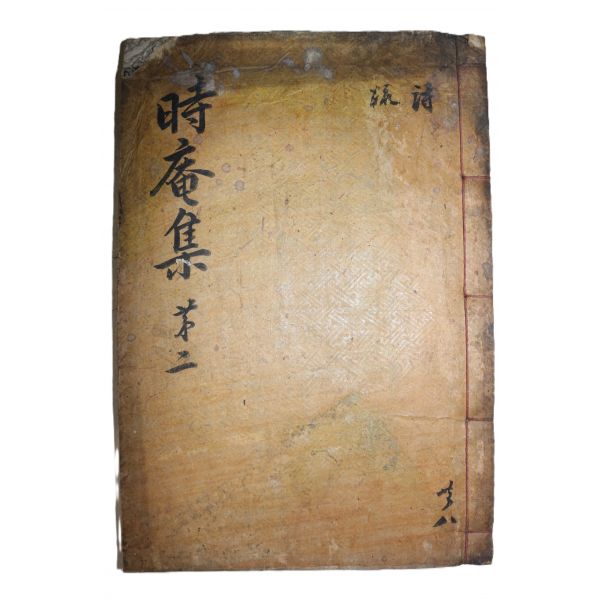 詩
時庵集 第二
共八